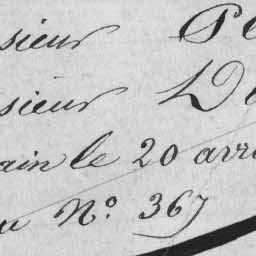 sieur Pe
sieur De
ain le 20 arro
u N.º 367